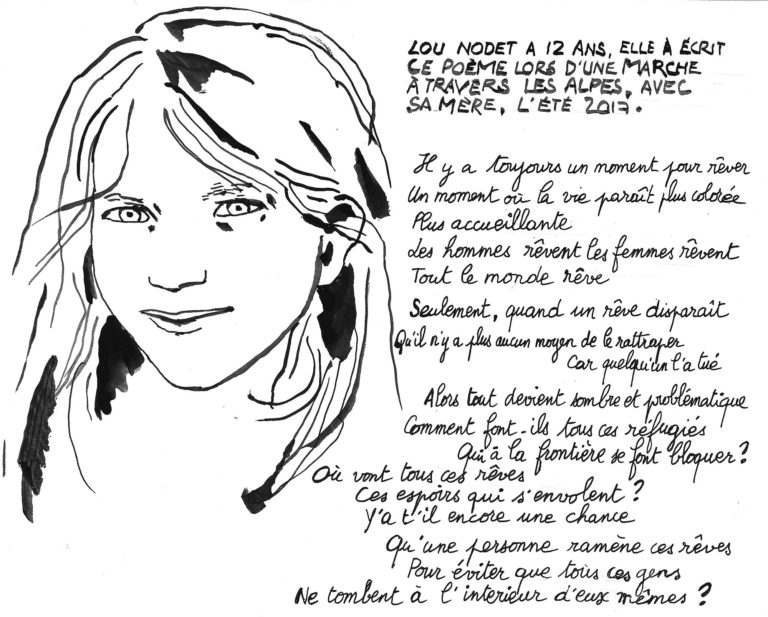 LOU NODET A 12 ANS, ELLE À ÉCRIT
CE POÈME LORS D'UNE MARCHE
À TRAVERS LES ALPES, AVEC
SA MÈRE, L'ÉTÉ 2017.
Il y a toujours un moment pour rêver
Un moment où la vie paraît plus colorée
Plus accueillante
Les hommes rêvent les femmes rêvent
Tout le monde rêve
Seulement, quand un rêve disparaît
Qu'il n'y a plus aucun moyen de le rattraper
Car quelqu'un l'a tué
Alors tout devient sombre et problématique
Comment font-ils tous ces réfugiés
Qui à la frontière se font bloquer?
Où vont tous ces rêves
Ces espoirs qui s'envolent?
Y'a t'il encore une chance
Qu'une personne ramène ces rêves
Pour éviter que tous ces gens
Ne tombent à l'intérieur d'eux mêmes?